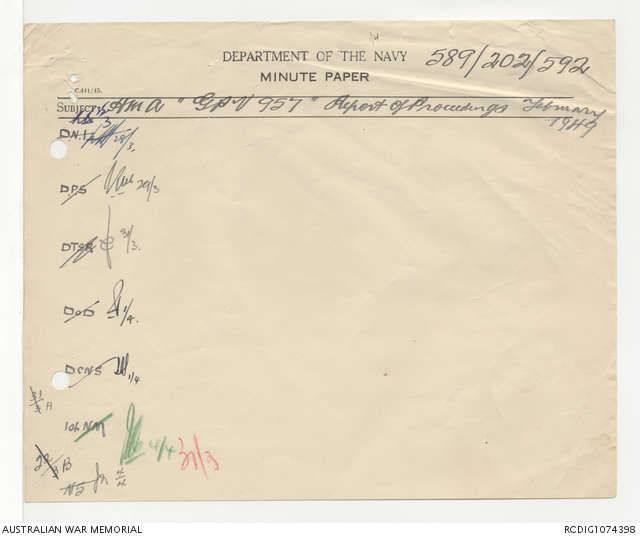 DEPARTMENT OF THE NAVY 589/202/592
MINUTE PAPER
C.441/45.
SUBJECT: HMA "GPV 957" Report of Proceedings February
1949
D.N.I. 28/3.
DPS 29/3
31/3.
DOD 1/4.
DCNS 1/4
A
1st NM 4/4 31/3
B
N2 4/4
AUSTRALIAN WAR MEMORIAL
RCDIG1074398